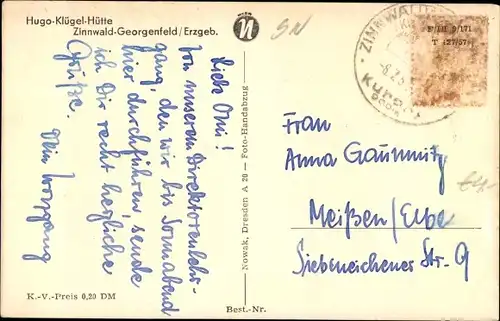 Hugo-Klügel-Hütte
Zinnwald-Georgenfeld/Erzgeb.
Liebe Omi!
Von unserem Direktorenlehr-
gang, den wir bis Sonnabend
hier durchführen, sende
ich Dir recht herzliche
Grüße.
Dein Wolfgang
K.-V.-Preis 0,20 DM
Nowak, Dresden A 20 — Foto-Handabzug
Best.-Nr.
ZINNWALD
Kur
III 9/171
T 427/57
Frau
Anna Gaumnitz
Meißen/Elbe
Siebeneichener Str. 9